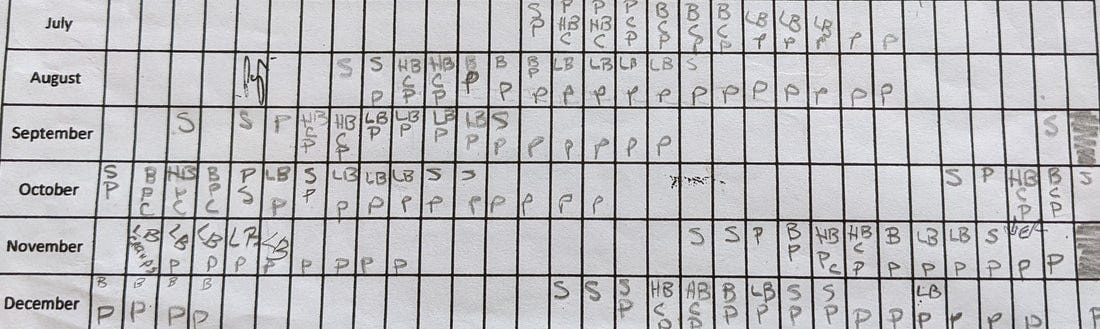 July S P P HB C P HB C P C P B S P B S P B C P LB P LB P LB P P P
August S S P HB C P HB C P B P B P B P LB P LB P LB P LB P S P P P P P P P
September S S P HB C P HB C P LB P LB P LB P LB P S P P P P P P S
October S P B P C HB P C B P C P S LB P S P LB P LB P LB P S P S P P P P S P HB C P B C P S
November LB LB P LB P LB P LB P P P P P S S P B P HB P C HB C P B P LB P LB P S P P P
December B P B P B P B P S S S P HB C P HB C P B P LB P S P S P P P LB P P P P P